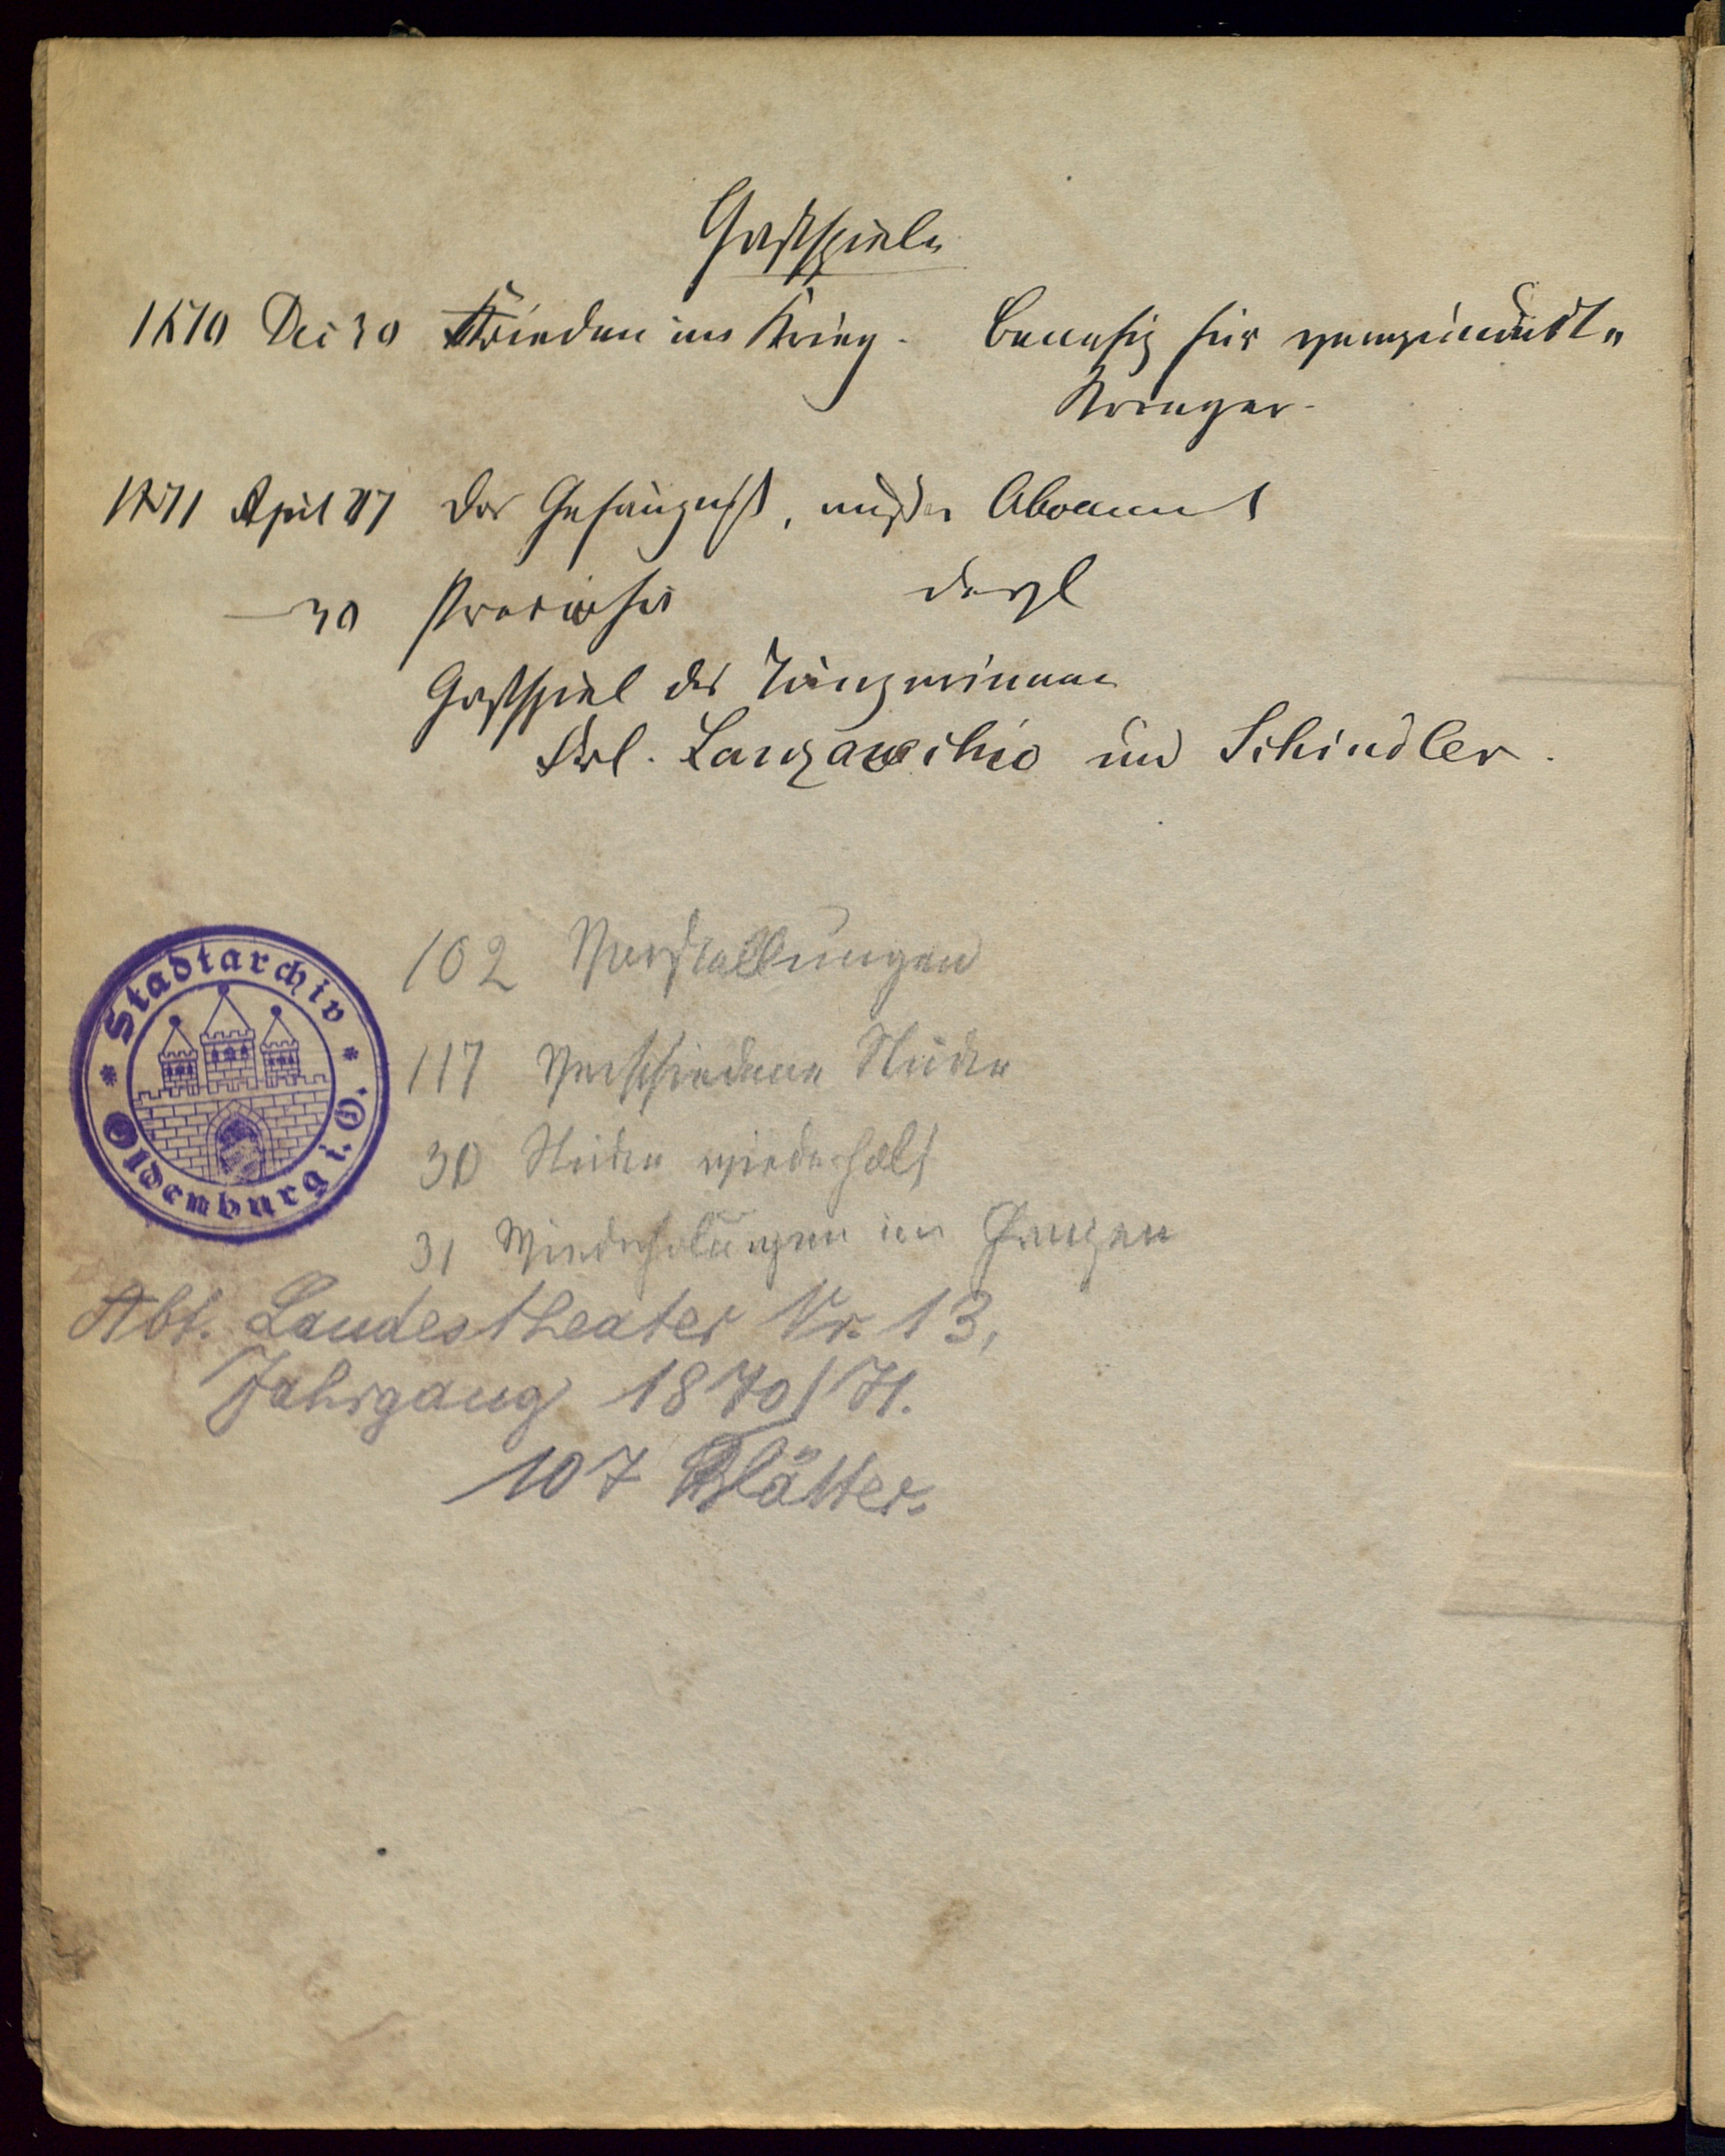 Gastspiele
1870 Dec 30 Frieden im Krieg. Benefiz für verwundete
Krieger.
1871 April 27 Das Gefängniß, außer Abonnemt
— 30 desgl
Gastspiel der Tänzerinnen
Frl. und Schindler.
102 Vorstellungen
117 Verschiedene Stücke
30 Stücke wiederholt
31 Wiederholungen im Ganzen
Stadtarchiv
Oldenburg i. O.
Abt. Landestheater Nr. 13,
Jahrgang 1870/71.
107 Blätter.